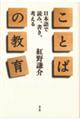 ことばの教育
日本語で
読み、書き、
考える
紅野謙介